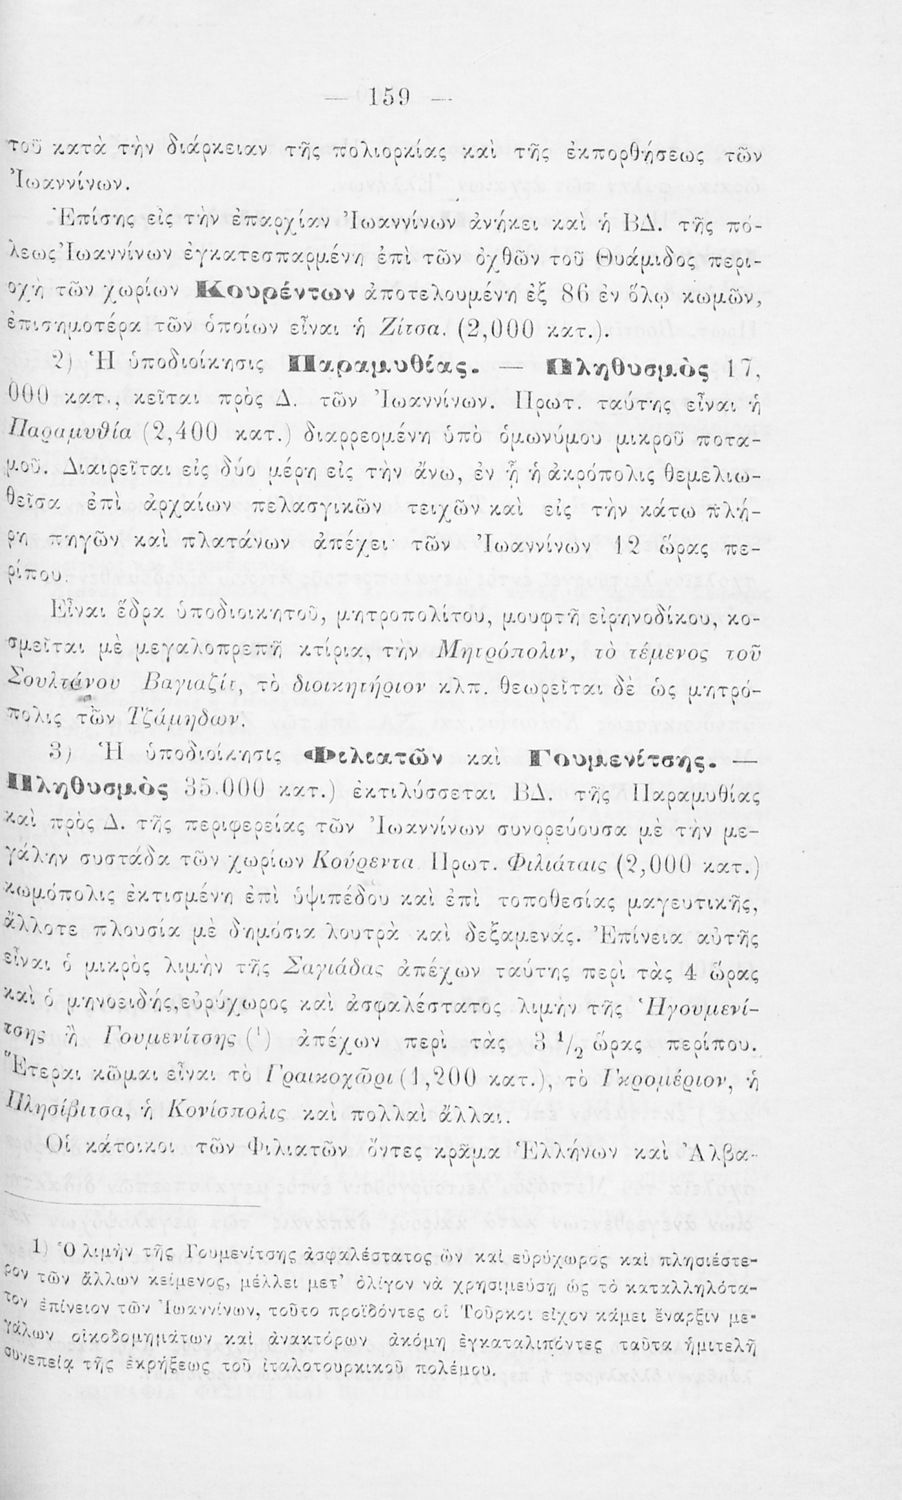 — 159 —
τοῦ κατὰ τὴν διάρκειαν τῆς πολιορκίας καὶ τῆς ἐκπορθήσεως τῶν
Ἰωαννίνων.
Ἐπίσης εἰς τὴν ἐπαρχίαν Ἰωαννίνων ἀνήκει καὶ ἡ ΒΔ. τῆς πό-
λεως Ἰωαννίνων ἐγκατεσπαρμένη ἐπὶ τῶν ὀχθῶν τοῦ Θυάμιδος περι-
οχὴ τῶν χωρίων Κουρέντων ἀποτελουμένη ἐξ 86 ἐν ὅλῳ κωμῶν,
ἐπισημοτέρα τῶν ὁποίων εἶναι ἡ Ζίτσα. (2,000 κατ.).
2) Ἡ ὑποδιοίκησις Παραμυθίας. — Πληθυσμὸς 17,
000 κατ., κεῖται πρὸς Δ. τῶν Ἰωαννίνων. Πρωτ. ταύτης εἶναι ἡ
Παραμυθία (2,400 κατ.) διαρρεομένη ὑπὸ ὁμωνύμου μικροῦ ποτα-
μοῦ. Διαιρεῖται εἰς δύο μέρη εἰς τὴν ἄνω, ἐν ᾗ ἡ ἀκρόπολις θεμελιω-
θεῖσα ἐπὶ ἀρχαίων πελασγικῶν τειχῶν καὶ εἰς τὴν κάτω πλή-
ρη πηγῶν καὶ πλατάνων ἀπέχει τῶν Ἰωαννίνων 12 ὥρας πε-
ρίπου.
Εἶναι ἕδρα ὑποδιοικητοῦ, μητροπολίτου, μουφτῆ εἰρηνοδίκου, κο-
σμεῖται μὲ μεγαλοπρεπῆ κτίρια, τὴν Μητρόπολιν, τὸ τέμενος τοῦ
Σουλτάνου Βαγιαζίτ, τὸ διοικητήριον κλπ. θεωρεῖται δὲ ὡς μητρό-
πολις τῶν Τζάμηδων.
3) Ἡ ὑποδιοίκησις Φιλιατῶν καὶ Γουμενίτσης. —
Πληθυσμὸς 35.000 κατ.) ἐκτιλύσσεται ΒΔ. τῆς Παραμυθίας
καὶ πρὸς Δ. τῆς περιφερείας τῶν Ἰωαννίνων συνορεύουσα μὲ τὴν με-
γάλην συστάδα τῶν χωρίων Κούρεντα Πρωτ. Φιλιάταις (2,000 κατ.)
κωμόπολις ἐκτισμένη ἐπὶ ὑψιπέδου καὶ ἐπὶ τοποθεσίας μαγευτικῆς,
ἄλλοτε πλουσία μὲ δημόσια λουτρὰ καὶ δεξαμενάς. Ἐπίνεια αὐτῆς
εἶναι ὁ μικρὸς λιμὴν τῆς Σαγιάδας ἀπέχων ταύτης περὶ τὰς 4 ὥρας
καὶ ὁ μηνοειδής, εὐρύχωρος καὶ ἀσφαλέστατος λιμὴν τῆς Ἡγουμενί-
τσης ἢ Γουμενίτσης (¹) ἀπέχων περὶ τὰς 3 ¹/₂ ὥρας περίπου.
Ἕτεραι κῶμαι εἶναι τὸ Γραικοχῶρι (1,200 κατ.), τὸ Γκρομέριον, ἡ
Πλησίβιτσα, ἡ Κονίσπολις καὶ πολλαὶ ἄλλαι.
Οἱ κάτοικοι τῶν Φιλιατῶν ὄντες κρᾶμα Ἑλλήνων καὶ Ἀλβα-
1) Ὁ λιμὴν τῆς Γουμενίτσης ἀσφαλέστατος ὢν καὶ εὐρύχωρος καὶ πλησιέστε-
ρον τῶν ἄλλων κείμενος, μέλλει μετ' ὀλίγον νὰ χρησιμεύσῃ ὡς τὸ καταλληλότα-
τον ἐπίνειον τῶν Ἰωαννίνων, τοῦτο προϊδόντες οἱ Τοῦρκοι εἶχον κάμει ἔναρξιν με-
γάλων οἰκοδομημάτων καὶ ἀνακτόρων ἀκόμη ἐγκαταλιπόντες ταῦτα ἡμιτελῆ
συνεπείᾳ τῆς ἐκρήξεως τοῦ ἰταλοτουρκικοῦ πολέμου.